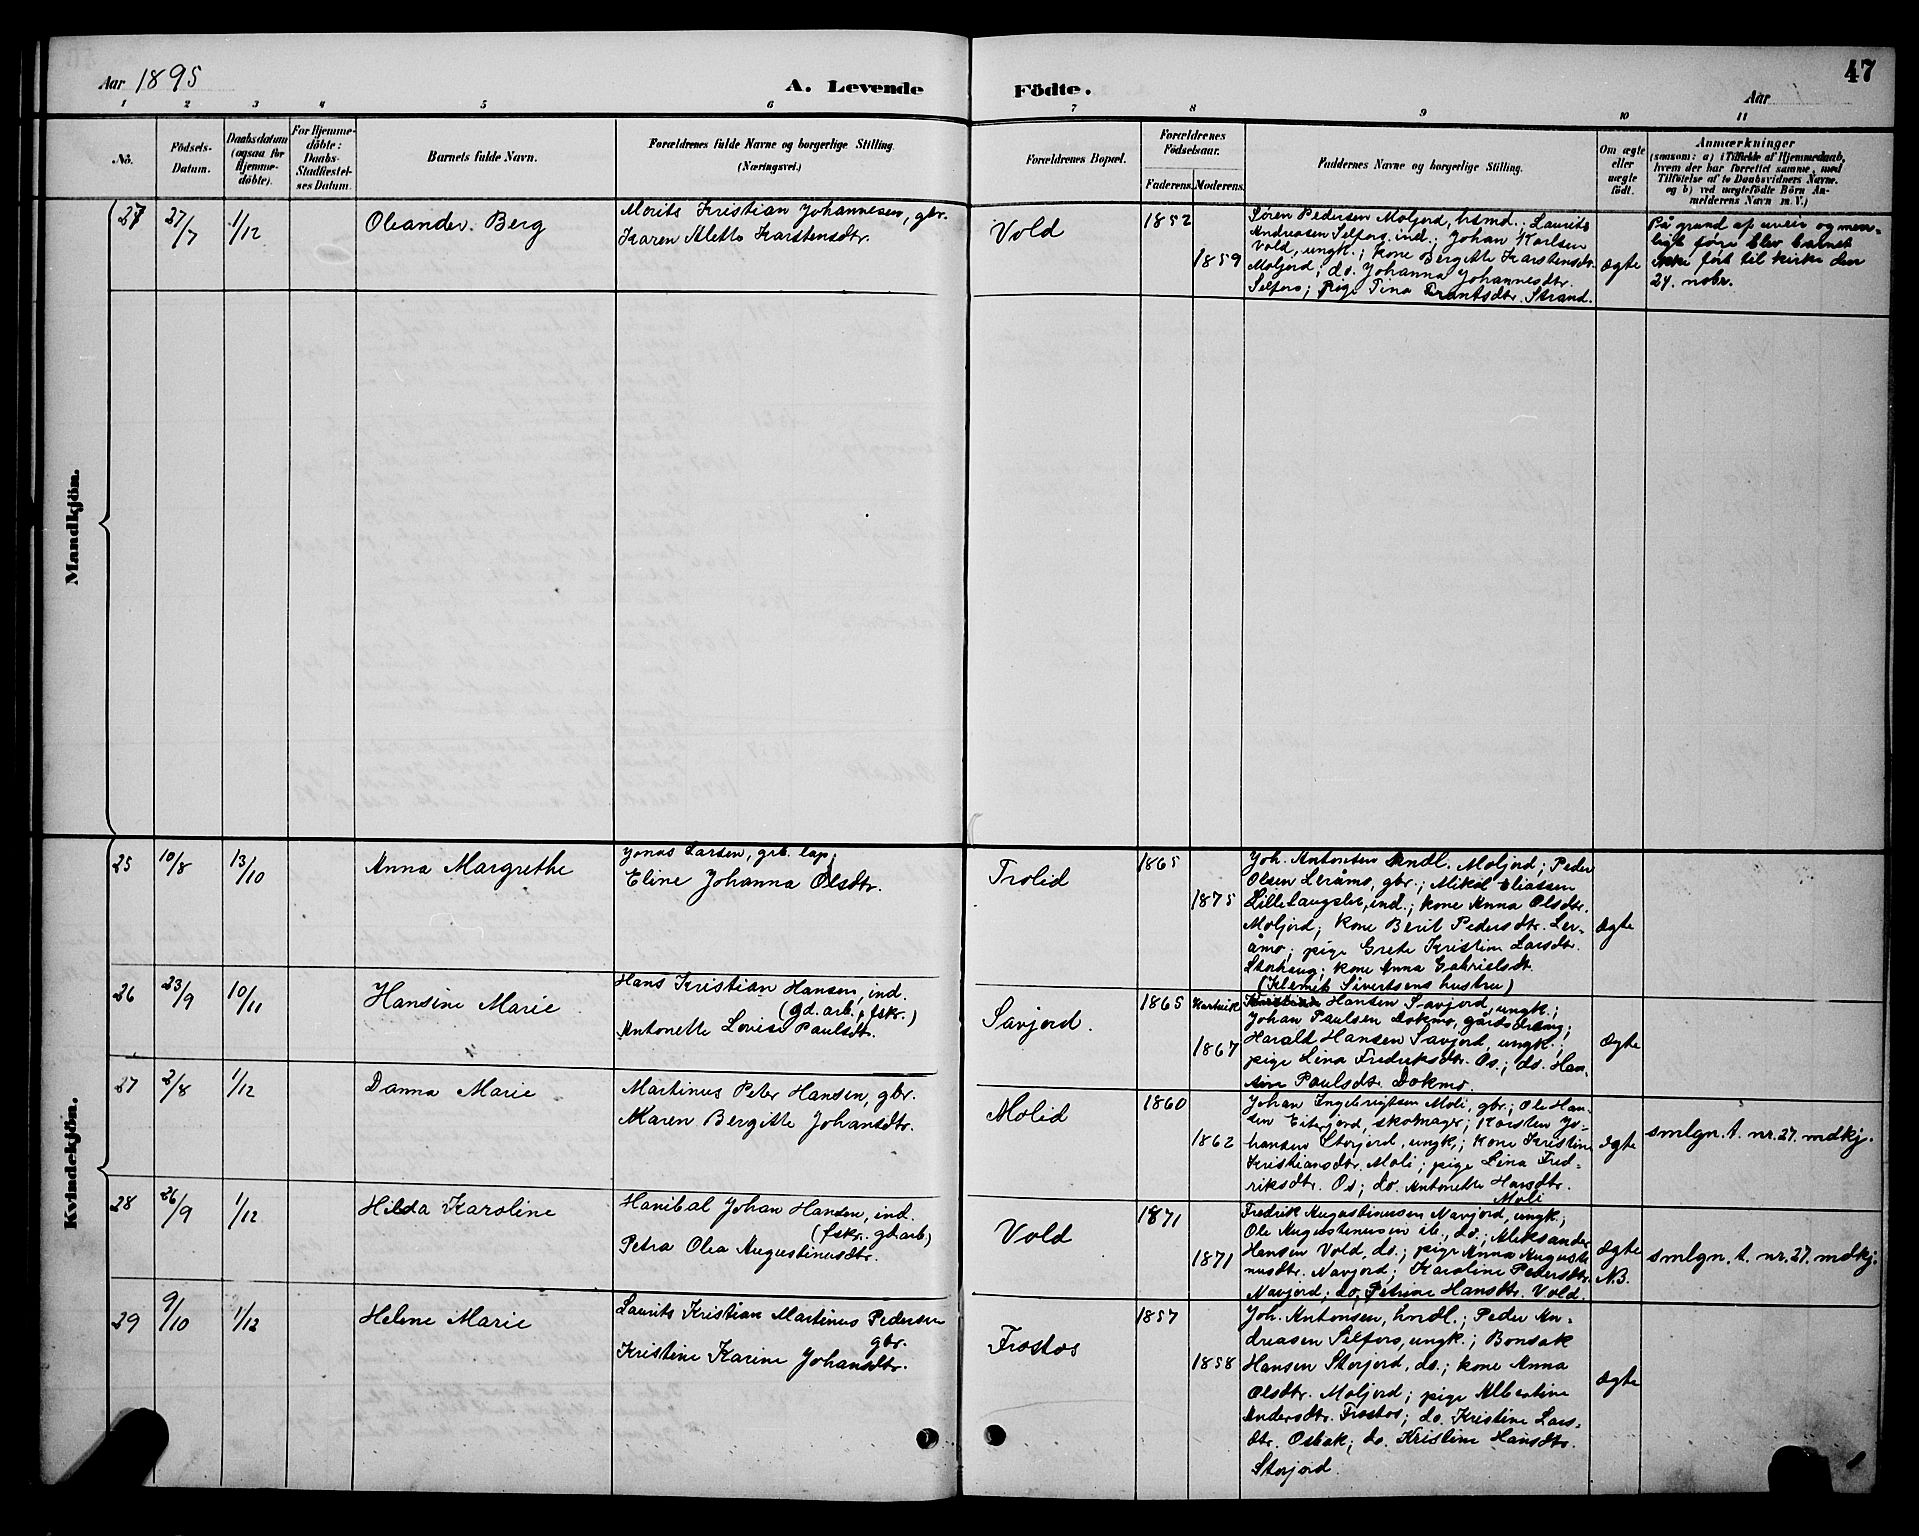 Aar 1895
A. Levende
Födte.
Aar
47
1 2 3 4 5 6 7 8 9 10 11
No.
Födsels-
Datum.
Daabsdatum
(ogsaa for
Hjemme-
döbte).
For Hjemme-
döbte:
Daabs-
Stadfæstel-
ses Datum.
Barnets fulde Navn.
Forældrenes fulde Navne og borgerlige Stilling.
(Næringsvei.)
Forældrenes Bopæl.
Forældrenes
Födselsaar.
Faderens.
Moderens.
Faddernes Navne og borgerlige Stilling.
Om ægte
eller
uægte
födt.
Anmærkninger
(saasom: a) i Tilfælde af Hjemmedaab,
hvem der har forrettet samme, med
Tilföielse af to Daabsvidners Navne,
og b) ved uægtefödte Börn An-
melderens Navn m. V.)
Mandkjön.
27
27/7
1/12
Oleander Berg
Morits Kristian Johannesen, gbr.
Karen Alette Karstensdtr.
Vold
1852
1859
Søren Pedersen Moljord, hsmd.; Laurits
Andreasen Selfors, ind.; Johan Karlsen
Vold, ungk.; kone Bergitte Karstensdtr.
Moljord; do. Johanna Johannesdtr.
Selfors; pige Tina Frantsdtr. Strand.
ægte
På grund af uveir og men-
ligt føre blev barnet
ikke ført til kirke den
24. nobr.
Kvindekjön.
25
10/8
13/10
Anna Margrethe
Jonas Larsen, grb. lap
Eline Johanna Olsdtr.
Trolid
1865
1875
Joh. Antonsen hndl. Moljord; Peder
Olsen Leråmo, gbr.; Mikal Eliassen
Lillelangslet, ind.; kone Anna Olsdtr.
Moljord; kone Berit Pedersdtr. Ler-
åmo; pige Grete Kristine Larsdtr.
Storhaug; kone Anna Gabrielsdt.
(Klemet Sivertsens hustru)
ægte
26
23/9
10/11
Hansine Marie
Hans Kristian Hansen, ind.
(gd.arb., fskr.)
Antonette Lovise Paulsdt.
Savjord.
1865
1867
Hansen Savjord, ungk.;
Johan Paulsen Dokmo, gårdsdreng;
Harald Hansen Savjord, ungk.;
pige Lina Fredriksdtr. Os; do. Han-
sine Paulsdtr. Dokmo.
ægte
27
2/8
1/12
Danna Marie
Martinus Peter Hansen, gbr.
Maren Bergitte Johansdtr.
Molid
1860
1862
Johan Ingebrigtsen Moli, gbr.; Ole Han-
sen Eiterjord, skomager; Karsten Jo-
hansen Storjord, ungk.; kone Kristine
Kristiansdtr. Moli; pige Lina Fred-
riksdtr. Os; do. Antonette Hansdtr.
Moli
ægte
smlgn. t. nr. 27. mdkj.
28
26/9
1/12
Hilda Karoline
Hanibal Johan Hansen, ind.
(fskr. gdarb)
Petra Olea Augustinusdtr.
Vold
1871
1871
Fredrik Augustinussen Navjord, ungk.;
Ole Augustinussen ib., do.; Aleksander
Hansen Vold, do.; pige Anna Augusti-
nusdtr. Navjord; Karoline Pedersdtr.
Navjord; do. Petrine Hansdtr. Vold.
ægte
N.B.
smlgn. t. nr. 27. mdkj.
29
9/10
1/12
Helene Marie
Laurits Kristian Martinus Pedersen
gbr.
Kristine Karine Johansdtr.
Frostos
1857
1858
Joh. Antonsen, hndl.; Peder An-
dreasen Selfors, ungk.; Bonsak
Hansen Storjord, do.; kone Anna
Olsdtr. Moljord; pige Albertine
Andersdtr. Frostos; do. Kristine Lars-
dtr. Osbak; do. Kristine Hansdtr.
Storjord.
ægte